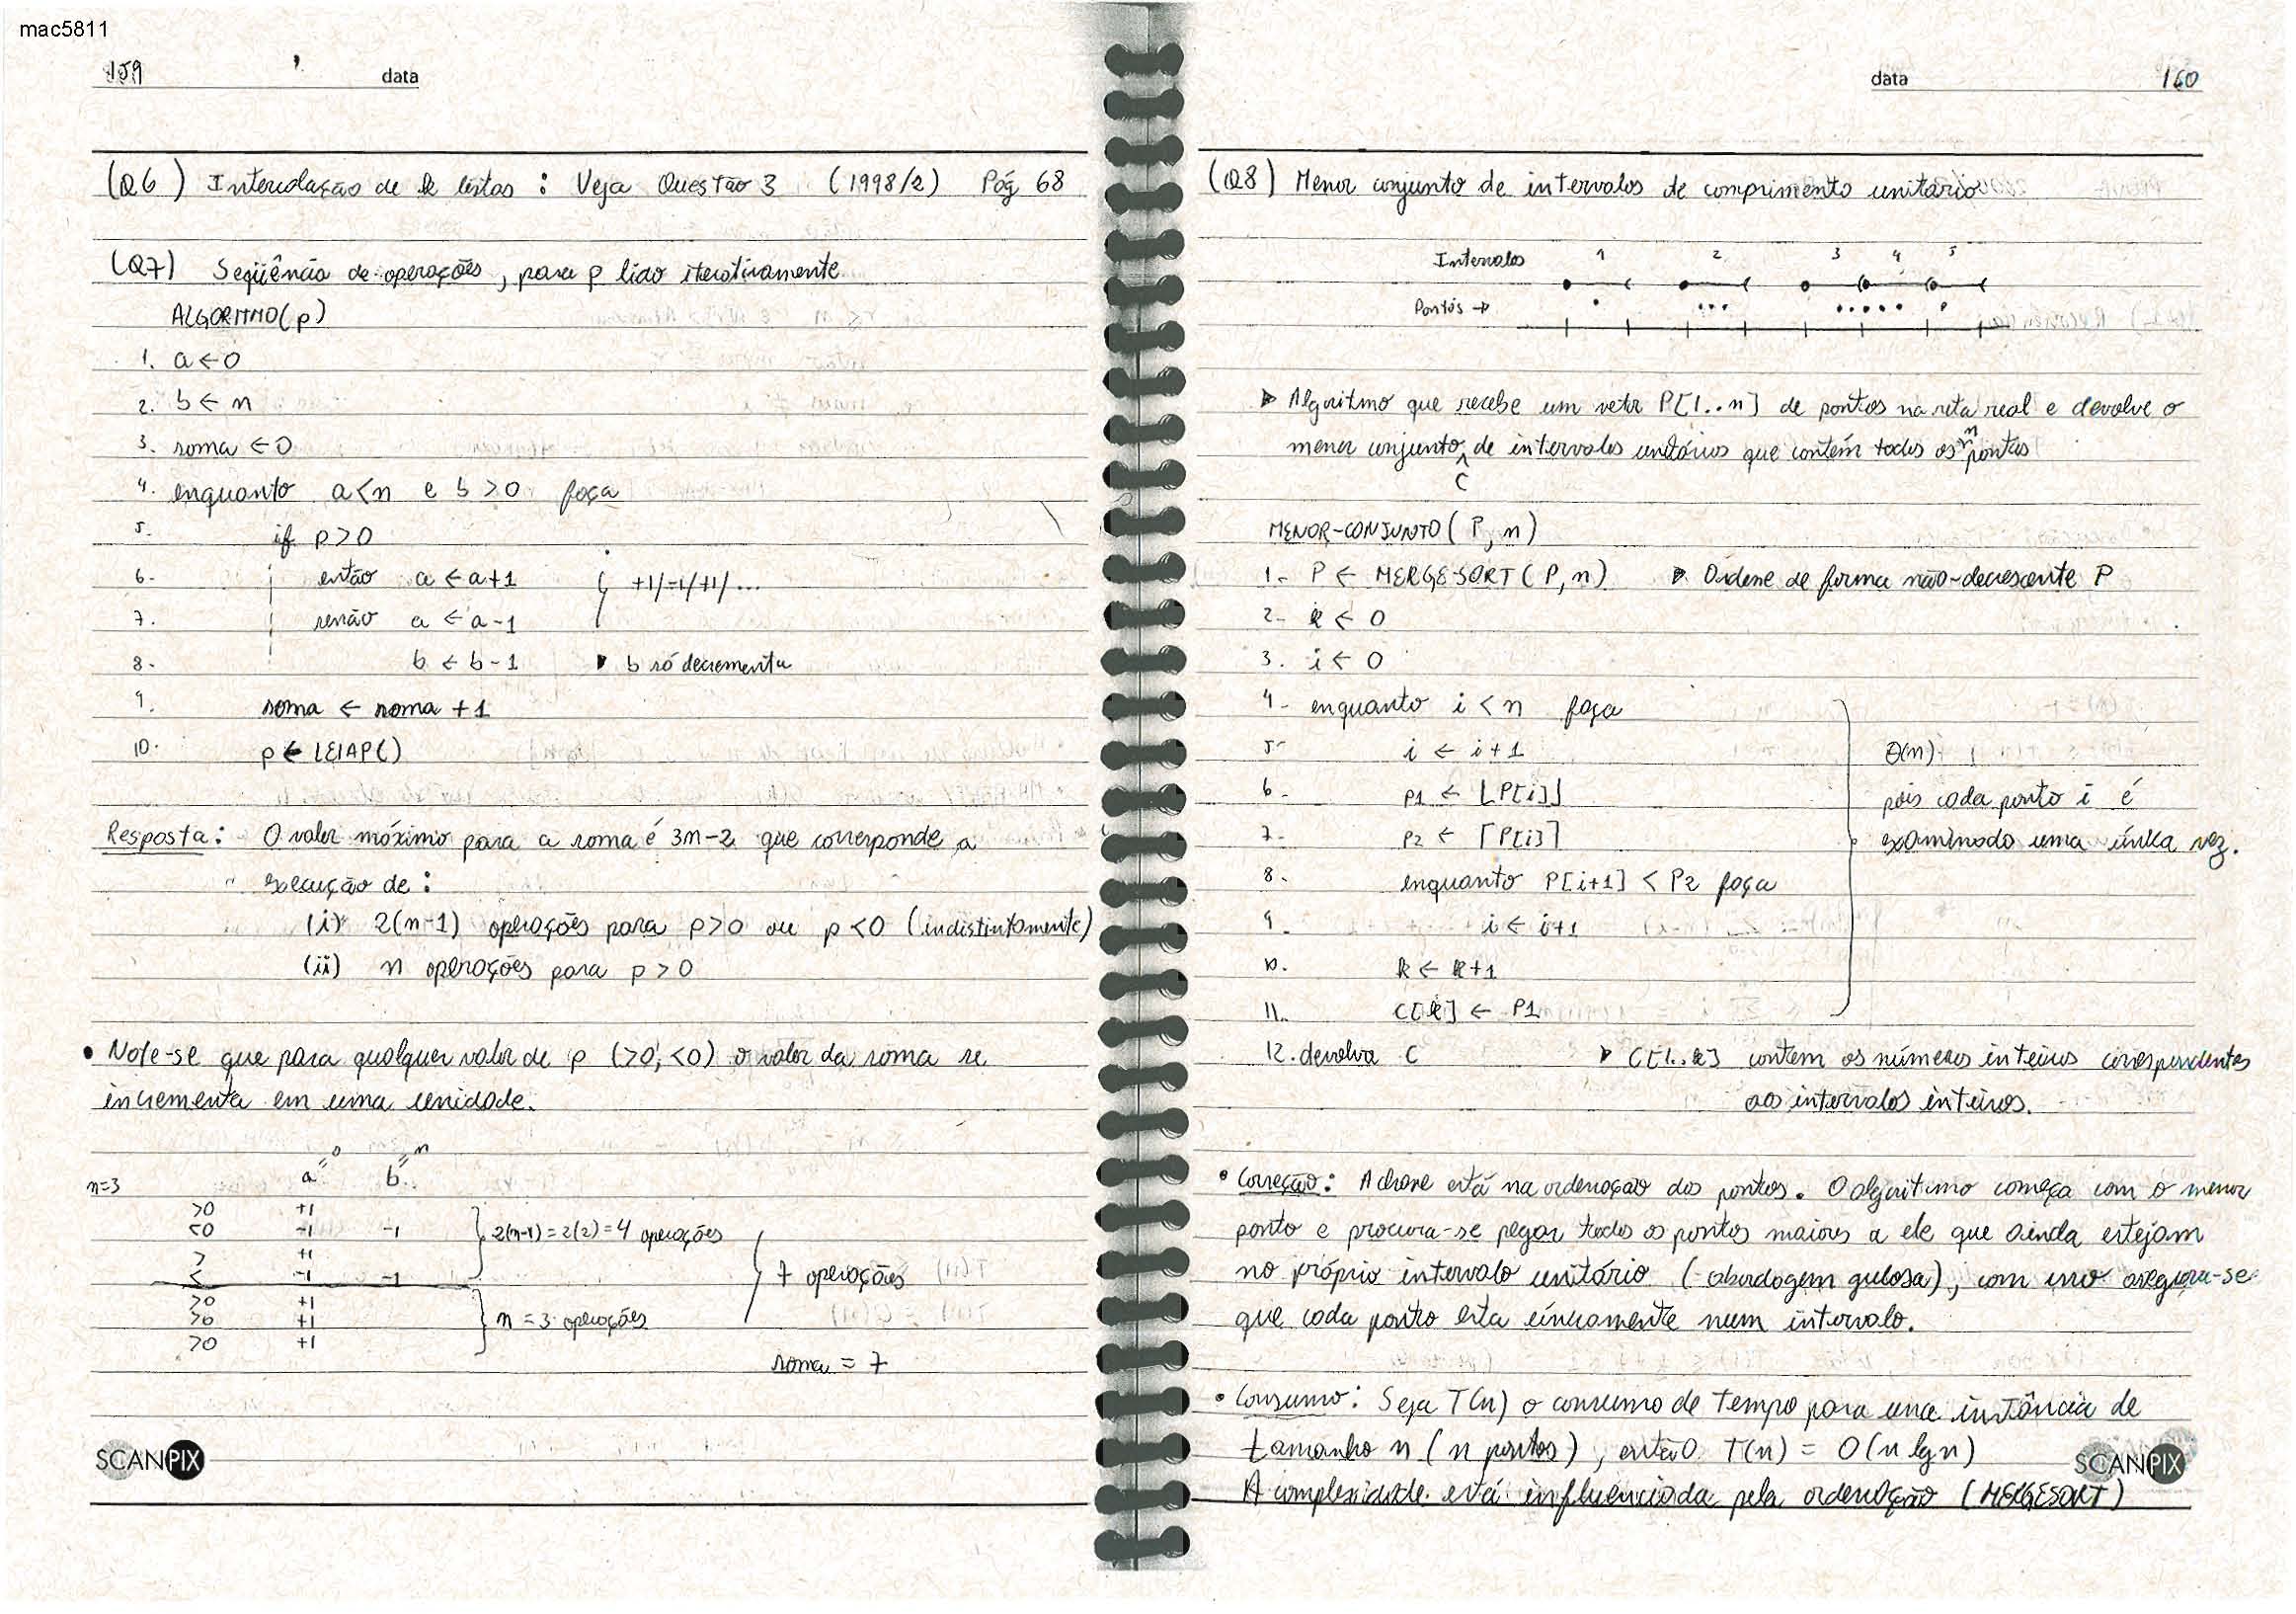 mac5811
159 data
(Q6) Intercalação de k listas : Veja Questão 3 (1998/2) Pág 68
(Q7) Seqüência de operações, para p lido iterativamente
ALGORITMO(p)
1. a ← 0
2. b ← n
3. soma ← 0
4. enquanto a < n e b > 0 faça
5. if p > 0
6. então a ← a+1 +1/-1/+1/...
7. senão a ← a-1
8. b ← b-1 ▶ b só decrementa
9. soma ← soma + 1
10. p ← LEIAP()
Resposta: O valor máximo para a soma é 3n-2 que corresponde a
execução de :
(i) 2(n-1) operações para p>0 ou p<0 (indistintamente)
(ii) n operações para p > 0
• Note-se que para qualquer valor de p (>0, <0) o valor da soma se
incrementa em uma unidade.
n=3 a=0 b=n
>0 +1
<0 -1 -1 2(n-1) = 2(2) = 4 operações
> +1
< -1 -1 7 operações
>0 +1
>0 +1 n = 3 operações
>0 +1
soma = 7
SCANPIX
data 160
(Q8) Menor conjunto de intervalos de comprimento unitário
Intervalos 1 2 3 4 5
Pontos →
▶ Algoritmo que recebe um vetor P[1..n] de pontos na reta real e devolve o
menor conjunto C de intervalos unitários que contém todos os n pontos
MENOR-CONJUNTO(P, n)
1- P ← MERGE-SORT(P, n) ▶ Ordene de forma não-decrescente P
2- k ← 0
3. i ← 0
4- enquanto i < n faça
5- i ← i+1 Θ(n)
6- P1 ← ⌊P[i]⌋ pois cada ponto i é
7- P2 ← ⌈P[i]⌉ examinado uma única vez.
8. enquanto P[i+1] < P2 faça
9. i ← i+1
10. k ← k+1
11. C[k] ← P1
12. devolva C ▶ C[1..k] contem os números inteiros correspondentes
aos intervalos inteiros.
• Correção: A chave está na ordenação dos pontos. O algoritmo começa com o menor
ponto e procura-se pegar todos os pontos maiores a ele que ainda estejam
no próprio intervalo unitário (abordagem gulosa), com isso assegura-se
que cada ponto esta únicamente num intervalo.
• Consumo: Seja T(n) o consumo de tempo para uma instância de
tamanho n (n pontos), então T(n) = O(n lg n)
A complexidade está influenciada pela ordenação (MERGESORT)
SCANPIX